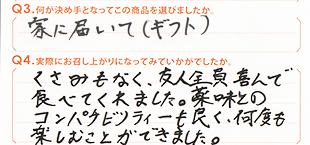 Q3.何が決め手となってこの商品を選びましたか。
家に届いて(ギフト)
Q4.実際にお召し上がりになってみていかがでしたか。
くさみもなく、友人全員喜んで
食べてくれました。薬味との
コンパクビリティーも良く、何度も
楽しむことができました。